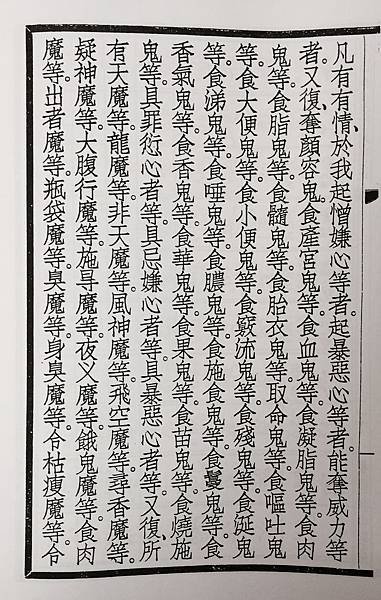 凡有有情、於我起憎嫌心等者。起暴惡心等者。能奪威力等
者。又復、奪顏容鬼。食產宮鬼等。食血鬼等。食凝脂鬼等。食肉
鬼等。食脂鬼等。食髓鬼等。食胎衣鬼等。取命鬼等。食嘔吐鬼
等。食大便鬼等。食小便鬼等。食竅流鬼等。食殘鬼等。食涎鬼
等。食涕鬼等。食唾鬼等。食膿鬼等。食施食鬼等。食鬘鬼等。食
香氣鬼等。食香鬼等。食華鬼等。食果鬼等。食苗鬼等。食燒施
鬼等。具罪愆心者等。具忌嫌心者等。具暴惡心者等。又復、所
有天魔等。龍魔等。非天魔等。風神魔等。飛空魔等。尋香魔等。
疑神魔等。大腹行魔等。施㝵魔等。夜叉魔等。餓鬼魔等。食肉
魔等。出者魔等。瓶袋魔等。臭魔等。身臭魔等。令枯瘦魔等。令